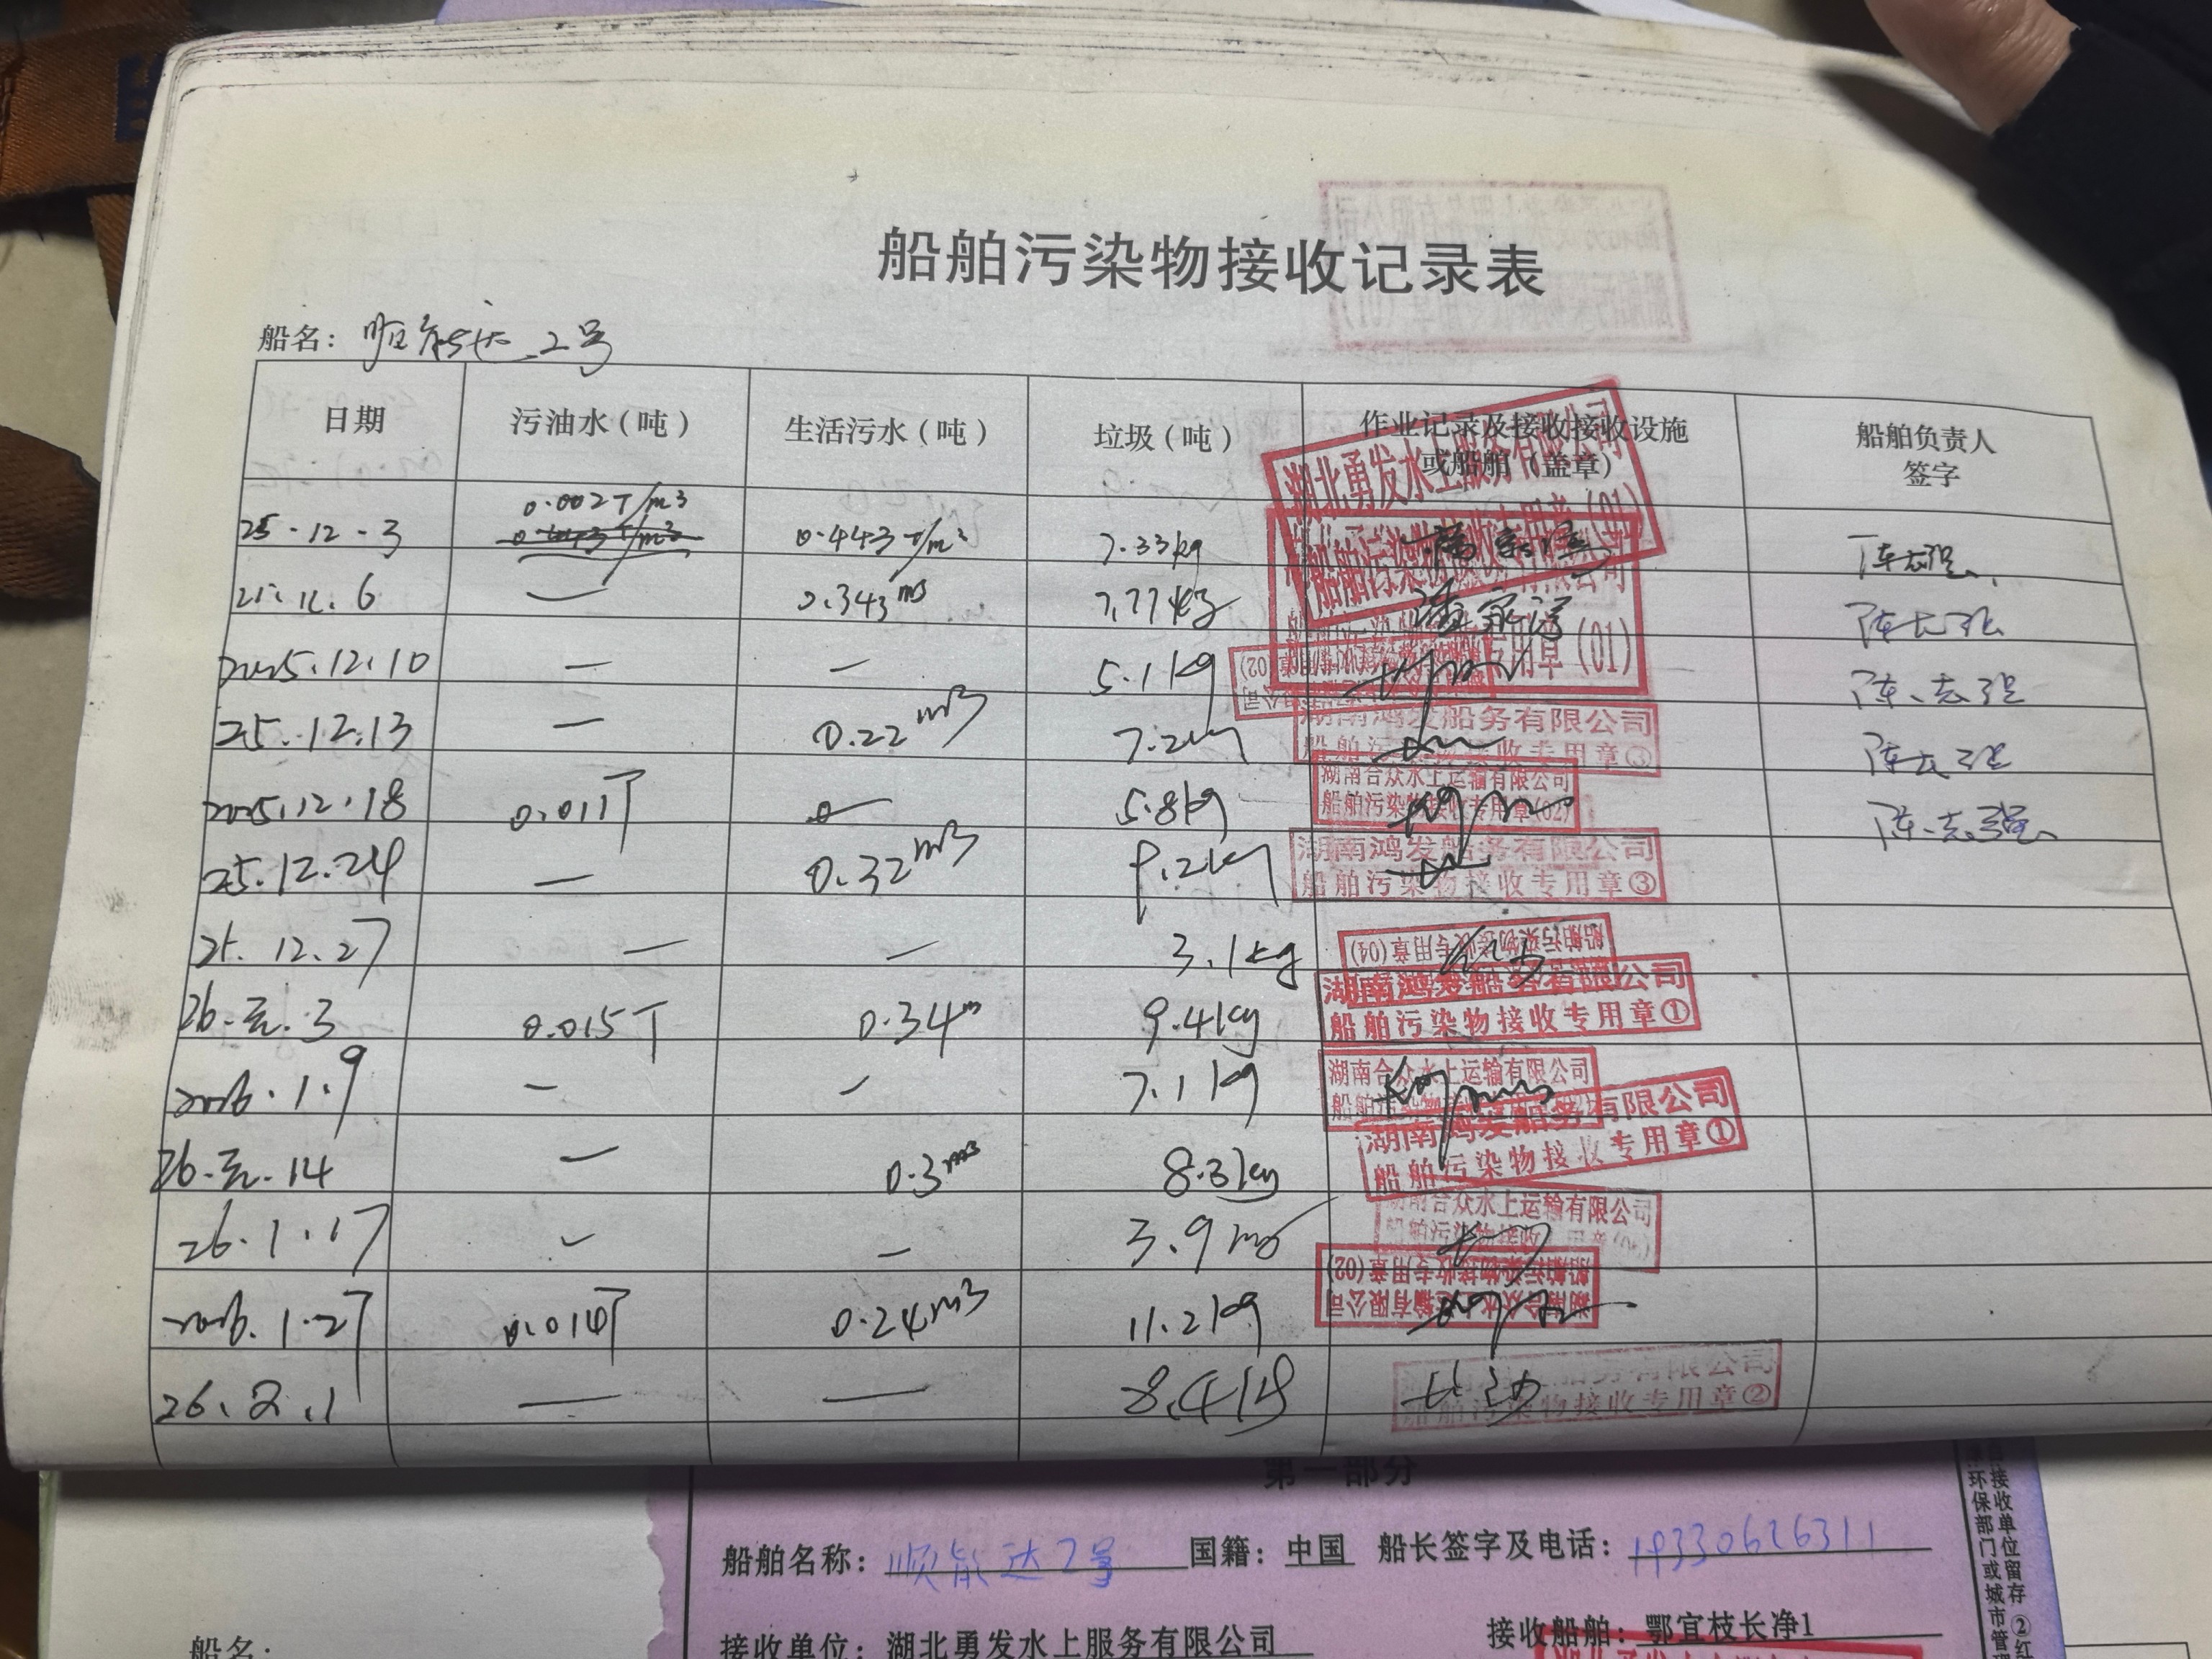 船舶污染物接收记录表
船名：顺能达2号
日期 污油水（吨） 生活污水（吨） 垃圾（吨） 作业记录及接收接收设施或船舶（盖章） 船舶负责人签字
25.12.3 0.002T/m3 0.443T/m3 7.33kg 陈志强
25.12.6 — 0.343m3 7.77kg 陈志强
2025.12.10 — — 5.1kg 陈志强
25.12.13 — 0.22m3 7.2kg 湖南鸿发船务有限公司 船舶污染物接收专用章③ 陈志强
2025.12.18 0.011T 0 5.8kg 湖南合众水上运输有限公司 船舶污染物接收专用章(02) 陈志强
25.12.24 — 0.32m3 9.2kg 湖南鸿发船务有限公司 船舶污染物接收专用章③
25.12.27 — — 3.1kg 船舶污染物接收专用章(04)
26.元.3 0.015T 0.34m 9.4kg 湖南鸿发船务有限公司 船舶污染物接收专用章①
2026.1.9 — — 7.1kg 湖南合众水上运输有限公司
26.元.14 — 0.3m3 8.3kg 湖南鸿发船务有限公司 船舶污染物接收专用章①
26.1.17 — — 3.9 湖南合众水上运输有限公司
2026.1.27 0.014T 0.24m3 11.2kg 湖南合众水上运输有限公司 船舶污染物接收专用章(02)
26.2.1 — — 8.4kg 船舶污染物接收专用章②
湖北勇发水上服务有限公司
船舶污染物接收专用章(01)
第一部分
船舶名称：顺能达2号 国籍：中国 船长签字及电话：19330626311
接收单位：湖北勇发水上服务有限公司 接收船舶：鄂宜枝长净1
船名：